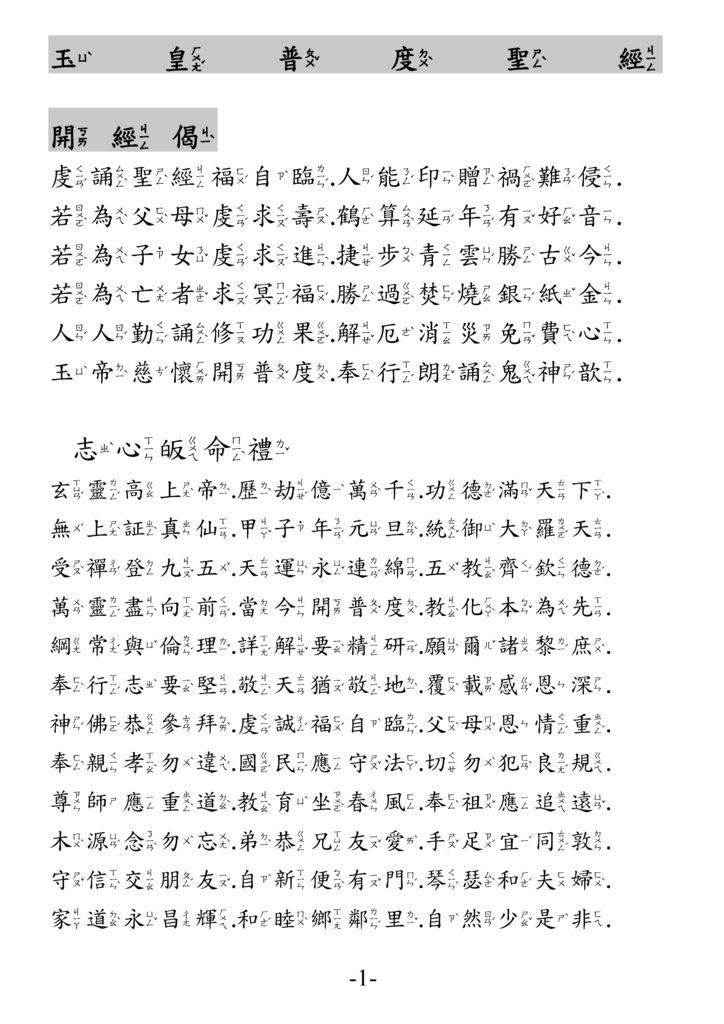 玉 皇 普 度 聖 經
開 經 偈
虔誦聖經福自臨.人能印贈禍難侵.
若為父母虔求壽.鶴算延年有好音.
若為子女虔求進.捷步青雲勝古今.
若為亡者求冥福.勝過焚燒銀紙金.
人人勤誦修功果.解厄消災免費心.
玉帝慈懷開普度.奉行朗誦鬼神歆.
志心皈命禮
玄靈高上帝.歷劫億萬千.功德滿天下.
無上証真仙.甲子年元旦.統御大羅天.
受禪登九五.天運永連綿.五教齊欽德.
萬靈盡向前.當今開普度.教化本為先.
綱常與倫理.詳解要精研.願爾諸黎庶.
奉行志要堅.敬天猶敬地.覆載感恩深.
神佛恭參拜.虔誠福自臨.父母恩情重.
奉親孝勿違.國民應守法.切勿犯良規.
尊師應重道.教育坐春風.奉祖應追遠.
木源念勿忘.弟恭兄友愛.手足宜同敦.
守信交朋友.自新便有門.琴瑟和夫婦.
家道永昌輝.和睦鄉鄰里.自然少是非.
-1-